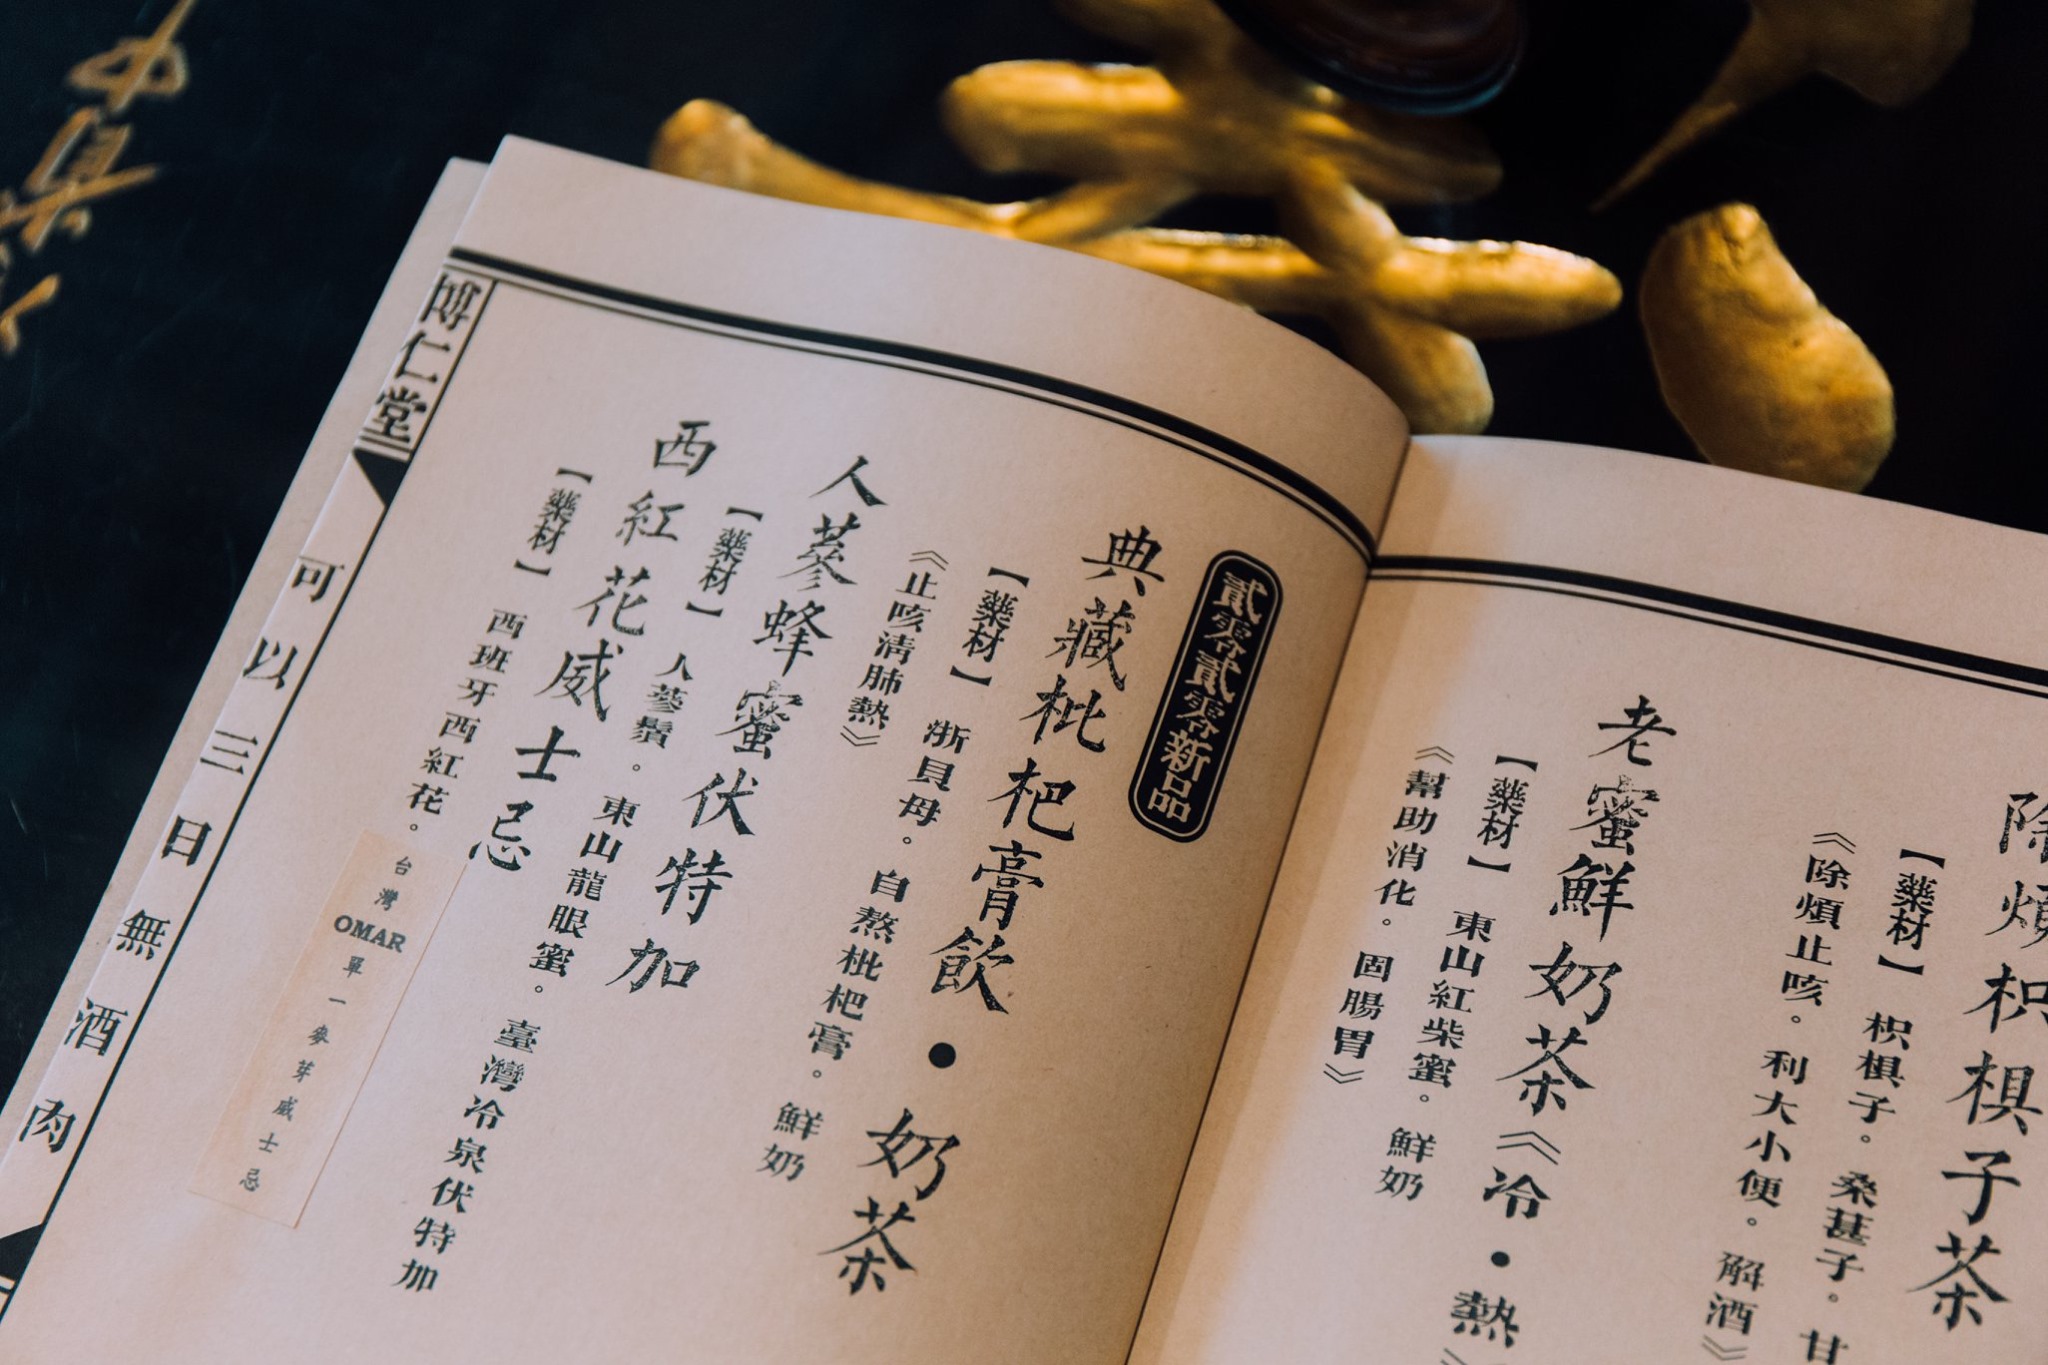 老蜜鮮奶茶《冷・熱》
【藥材】東山紅柴蜜。鮮奶
《幫助消化。固腸胃》
枳椇子茶
【藥材】枳椇子。桑葚子。甘
《除煩止咳。利大小便。解酒》
貳零貳零新品
典藏枇杷膏飲・奶茶
【藥材】浙貝母。自熬枇杷膏。鮮奶
《止咳清肺熱》
人蔘蜂蜜伏特加
【藥材】人蔘鬚。東山龍眼蜜。臺灣冷泉伏特加
西紅花威士忌
【藥材】西班牙西紅花。
台灣OMAR單一麥芽威士忌
博仁堂
可以三日無酒肉